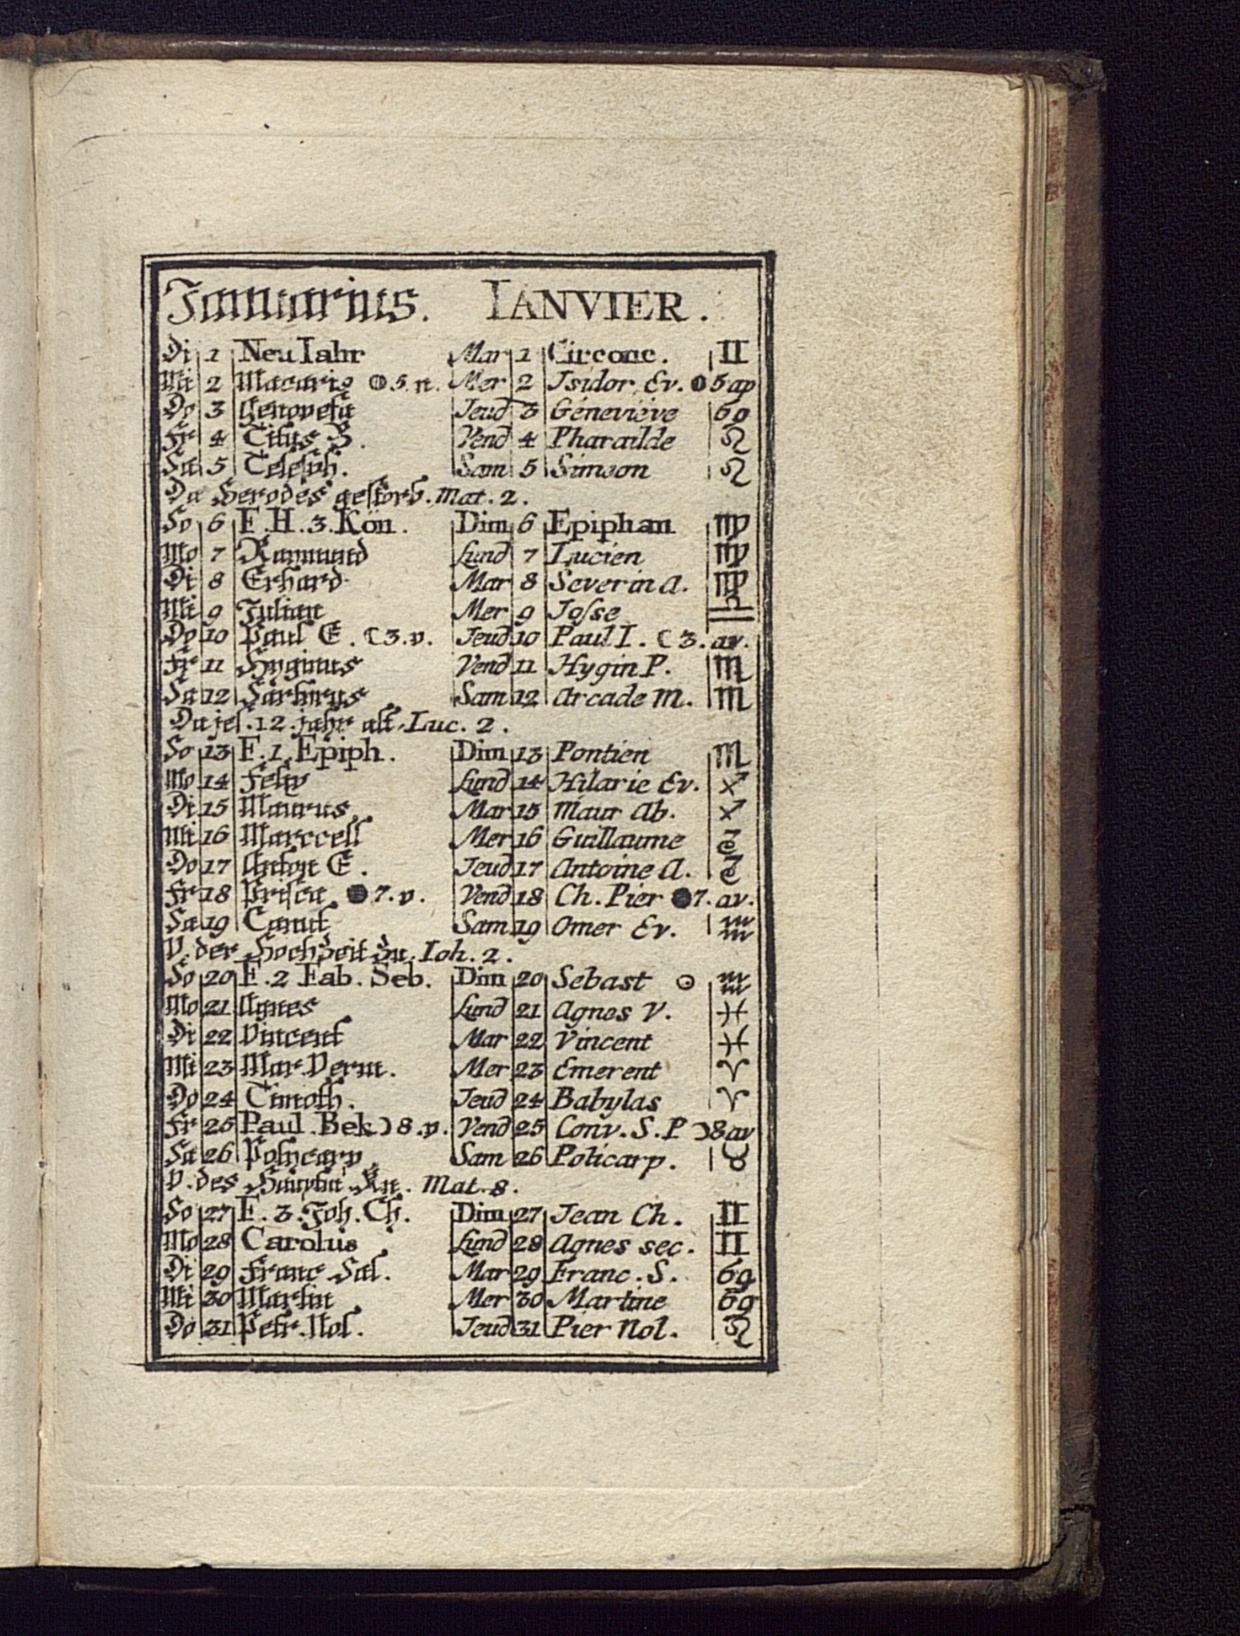 Januarius. IANVIER.
Di 1 Neu Iahr Mar 1 Circonc. ♊
Mi 2 Macari9 5. n. Mer 2 Isidor. Ev. 5 ap
Do 3 Genovefa Jeud 3 Géneviéve ♋
Fr 4 Titus B. Vend 4 Pharailde ♌
Sa 5 Telesph. Sam 5 Simeon ♌
Da Herodes gestorb. Mat. 2.
So 6 F. H. 3. Kön. Dim 6 Epiphan ♍
Mo 7 Raymund Lund 7 Lucien ♍
Di 8 Erhard Mar 8 Severin A. ♍
Mi 9 Julian Mer 9 Josse ♎
Do 10 Paul E. ☾ 3. v. Jeud 10 Paul I. ☾ 3. av.
Fr 11 Hyginus Vend 11 Hygin P. ♏
Sa 12 Sam 12 Arcade M. ♏
Da jes. 12. jahr alt. Luc. 2.
So 13 F. 1. Epiph. Dim 13 Pontien ♏
Mo 14 Felix Lund 14 Hilarie Ev. ♐
Di 15 Maurus Mar 15 Maur Ab. ♐
Mi 16 Marccell Mer 16 Guillaume ♑
Do 17 Anton E. Jeud 17 Antoine A. ♑
Fr 18 Prisca ● 7. v. Vend 18 Ch. Pier ● 7. av.
Sa 19 Canut Sam 19 Omer Ev. ♒
V. der Hochzeit zu. Ioh. 2.
So 20 F. 2 Fab. Seb. Dim 20 Sebast ☉ ♒
Mo 21 Agnes Lund 21 Agnes V. ♓
Di 22 Vincent Mar 22 Vincent ♓
Mi 23 Mar. Verm. Mer 23 Emerent ♈
Do 24 Timoth. Jeud 24 Babylas ♈
Fr 25 Paul. Bek ☽ 8. v. Vend 25 Conv. S. P ☽ 8 av
Sa 26 Polycarp Sam 26 Policarp. ♉
V. des Hauptm. Kn. Mat. 8.
So 27 F. 3. Joh. Ch. Dim 27 Jean Ch. ♊
Mo 28 Carolus Lund 28 Agnes sec. ♊
Di 29 Franc. Sal. Mar 29 Franc. S. ♋
Mi 30 Martin Mer 30 Martine ♋
Do 31 Petr. Nol. Jeud 31 Pier Nol. ♌